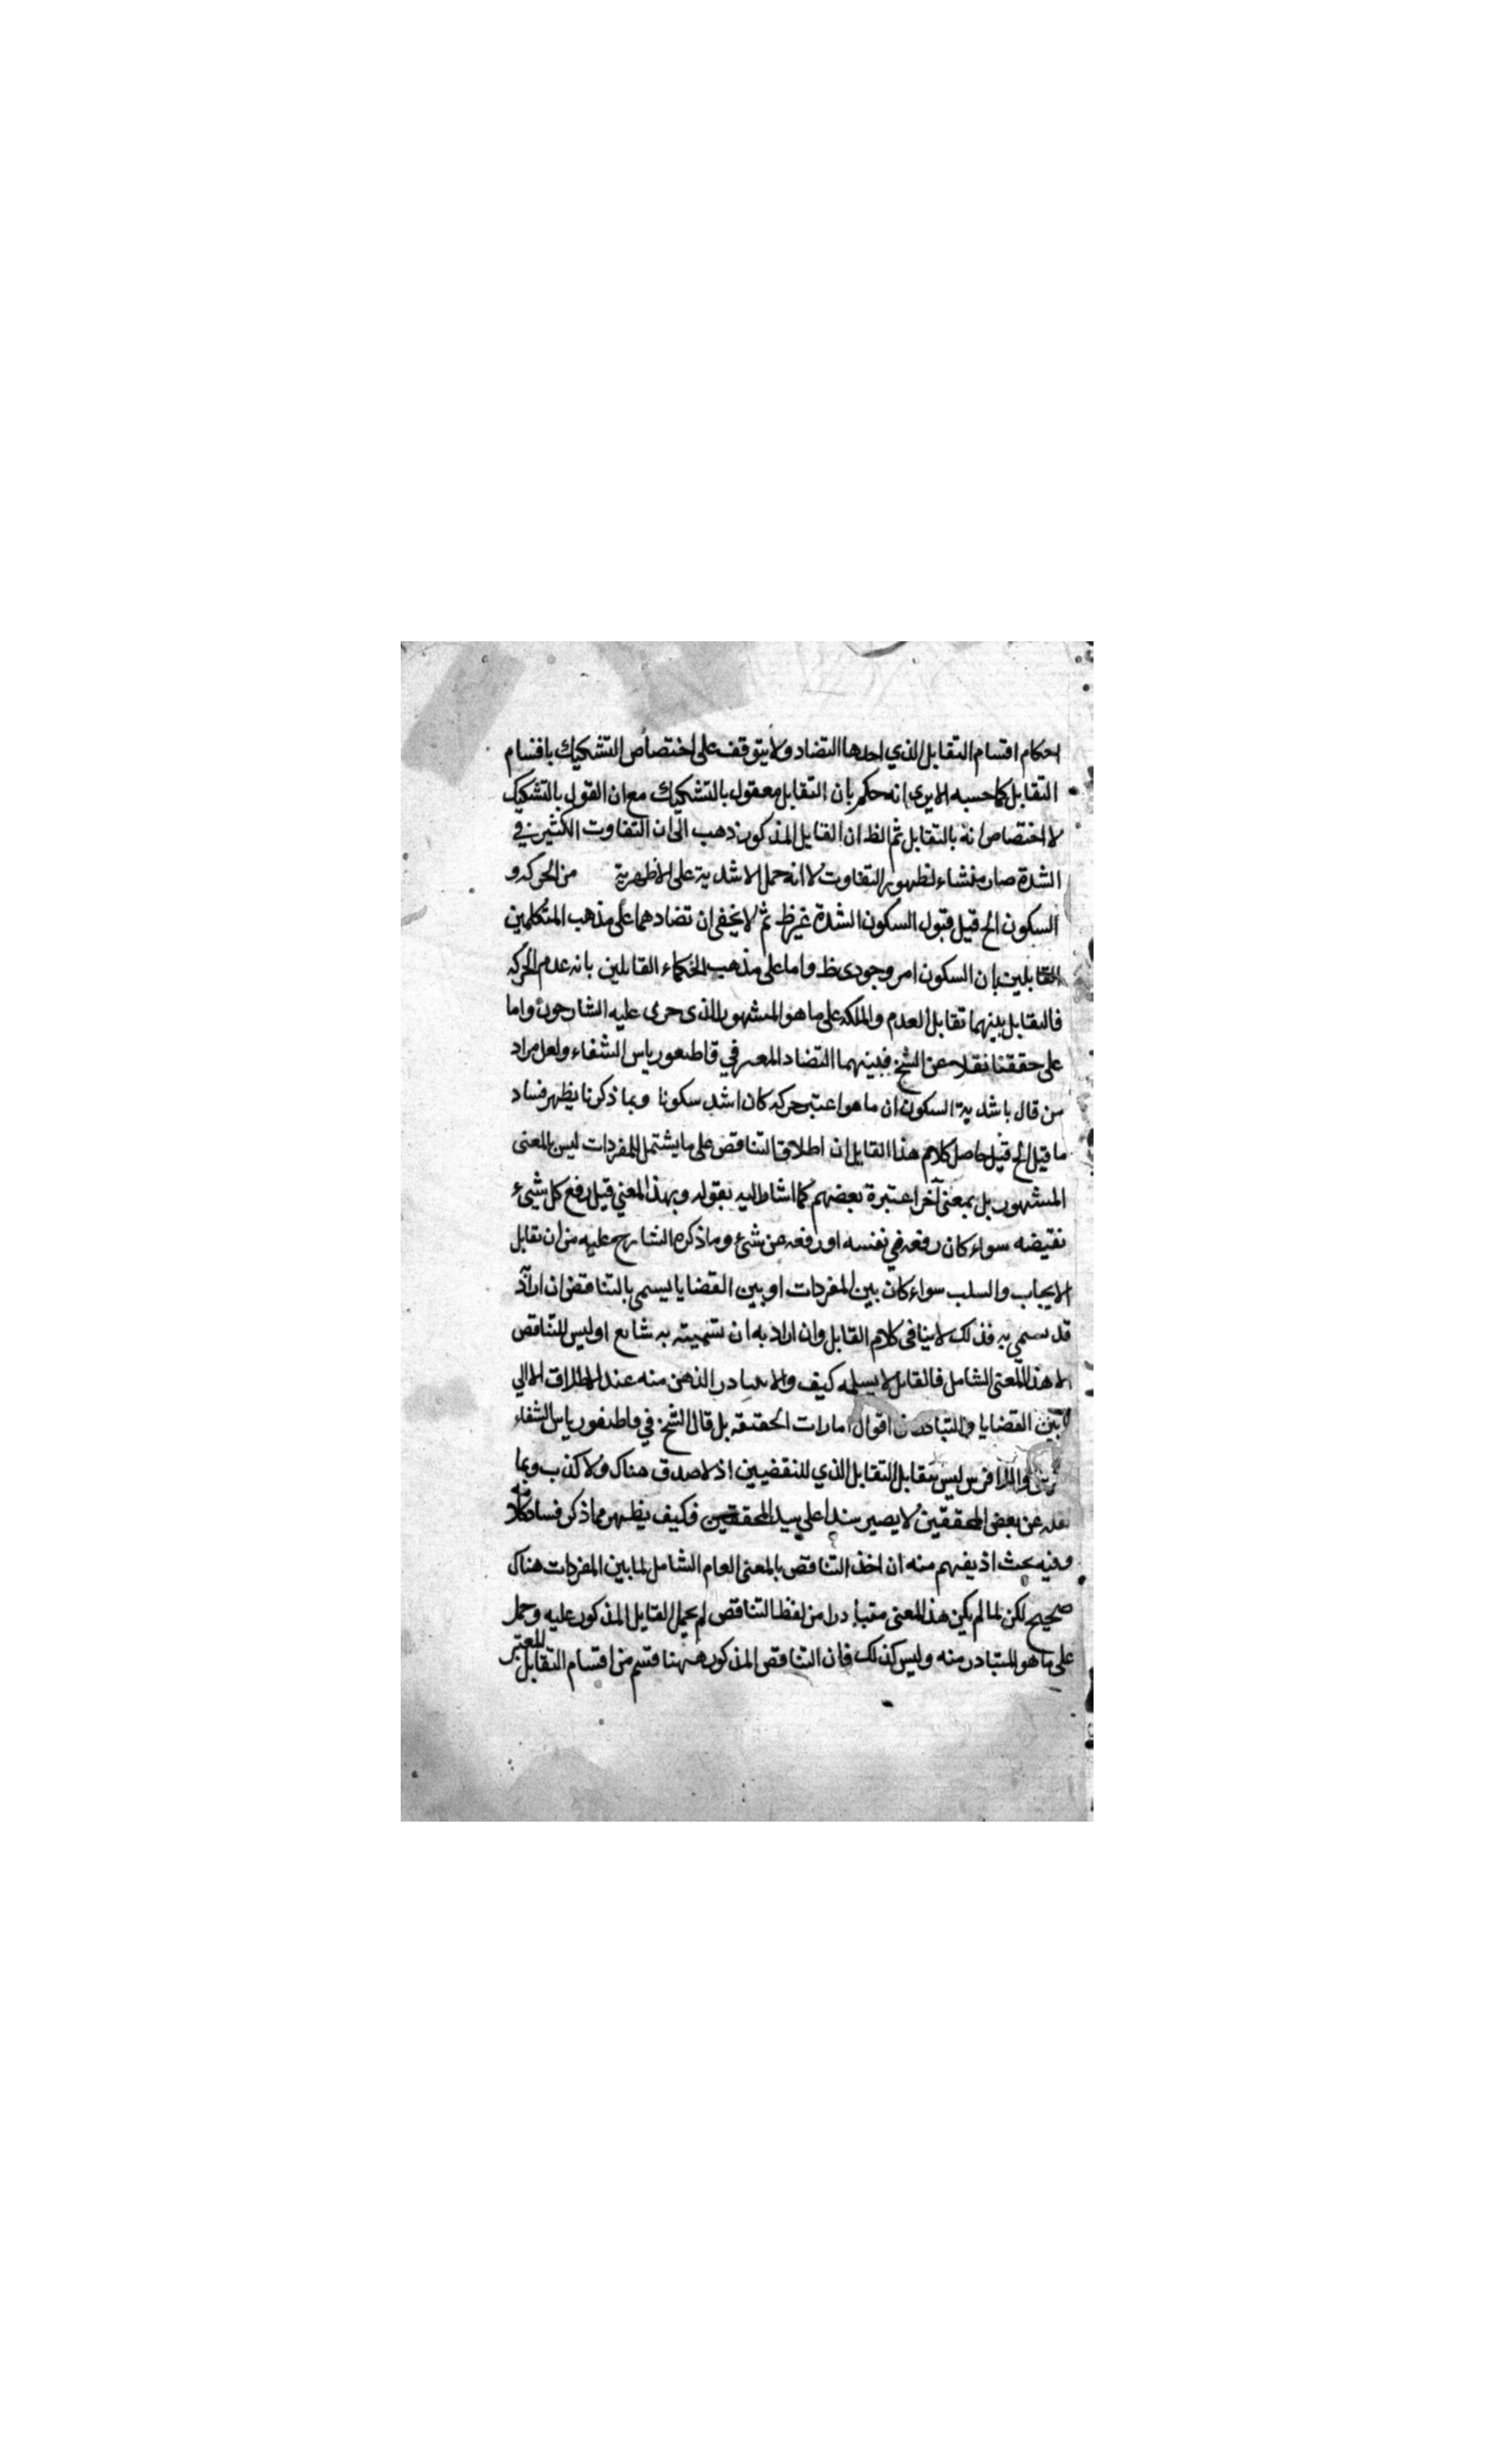 احكام اقسام التقابل الذي احدها التضاد ولا يتوقف على اختصاص التشكيك باقسام
التقابل كما حسبه الا يرى انه حكم بان التقابل معقول بالتشكيك مع ان القول بالتشكيك
لا اختصاص له بالتقابل ثم الظ ان القايل المذكور ذهب الى ان التفاوت الكثير في
الشدة صار منشاء لظهور التفاوت لا انه حمل الاشدية على الاظهرية من الحركه و
السكون الخ قيل قبول السكون الشدة غير ظ ثم لا يخفى ان تضادهما على مذهب المتكلمين
القايلين بان السكون امر وجودي ظ واما على مذهب الحكماء القايلين بانه عدم الحركه
فالتقابل بينهما تقابل العدم والملكه على ما هو المشهور الذي جرى عليه الشارحون واما
على حققنا نقلا عن الشيخ فبينهما التضاد المعبر في قاطيغورياس الشفاء ولعل مراد
من قال باشدية السكون ان ما هو اعتبر حركه كان اشد سكونا وبما ذكرنا يظهر فساد
ما قيل الخ قيل حاصل كلام هذا القايل ان اطلاق التناقض على ما يشتمل المفردات ليس بالمعنى
المشهور بل بمعنى آخر اعتبرة بعضهم كما اشار اليه بقوله وبهذا المعني قيل رفع كل شيء
نقيضه سواء كان رفعه في نفسه او رفعه عن شيء وما ذكره الشارح عليه من ان تقابل
الايجاب والسلب سواء كان بين المفردات او بين القضايا يسمى بالتناقض ان اراد
قد يسمى به فذلك لا ينافى كلام القايل وان اراد به ان تسميته به شايع او ليس للتناقض
الا هذا المعنى الشامل فالقايل لا يسلمه كيف ولا يتبادر الذهن منه عند الاطلاق الا الي
ما بين القضايا والتبادر من اقوال امارات الحقيقه بل قال الشيخ في قاطيغورياس الشفاء
والا فرس ليس يتقابل التقابل الذي للنقيضين اذ لا صدق هناك ولا كذب وبما
نقله عن بعض المحققين لا يصير سندا على سيد المحققين فكيف يظهر مما ذكر فساد كلامه
وفيه بحث اذ يفهم منه ان اخذ التناقض بالمعنى العام الشامل لما بين المفردات هناك
صحيح لكن لما لم يكن هذا المعنى متبادرا من لفظ التناقض لم يحمل القايل المذكور عليه وحمل
على ما هو المتبادر منه وليس كذلك فان التناقض المذكور ههنا قسم من اقسام التقابل المعتبر